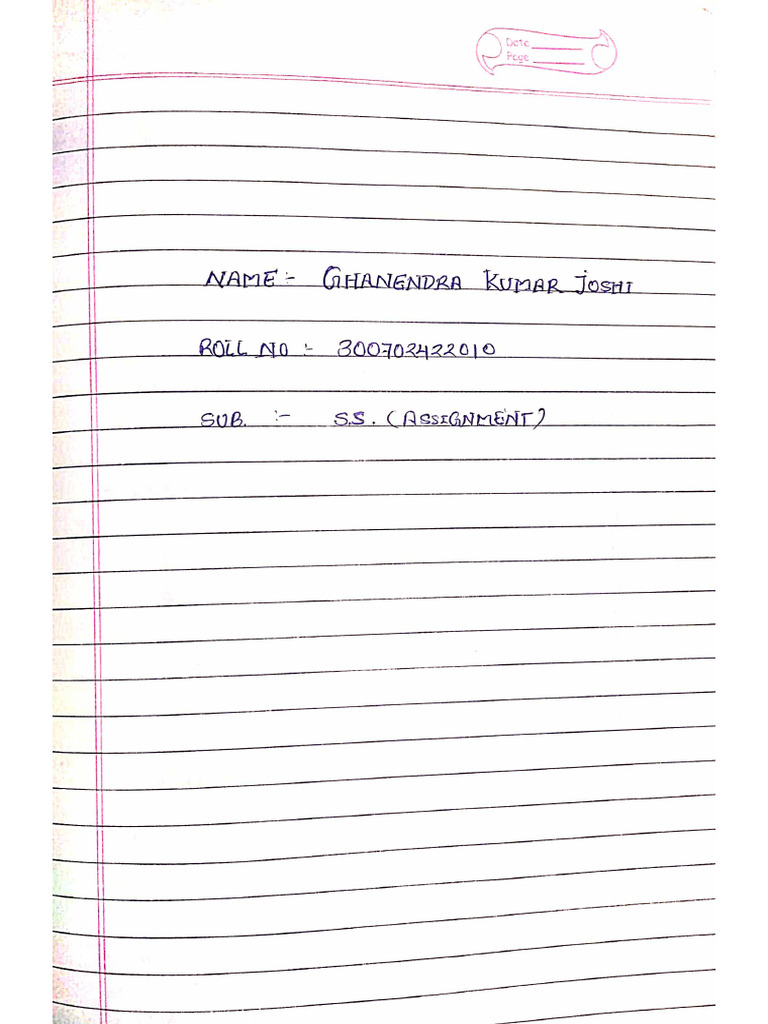 Date
Page
NAME :- GHANENDRA KUMAR JOSHI
ROLL NO :- 300702422010
SUB. :- S.S. (ASSIGNMENT)